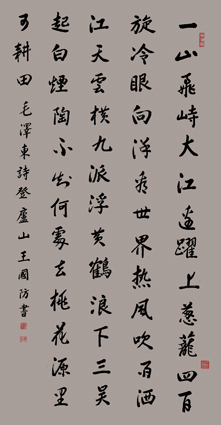 一山飛峙大江邊躍上蔥蘢四百
旋冷眼向洋看世界熱風吹雨洒
江天雲橫九派浮黃鶴浪下三吳
起白煙陶不知何處去桃花源里
可耕田 毛澤東詩登廬山王國防書